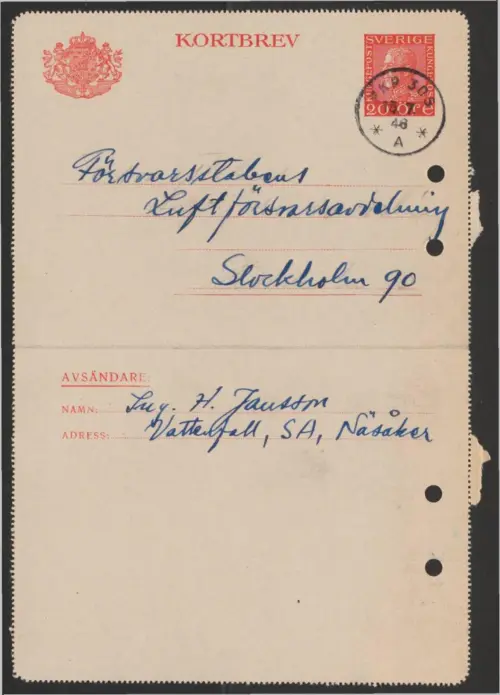 KORTBREV
SVERIGE
PKP 305
7
46
A
Försvarsstabens
Luftförsvarsavdelning
Stockholm 90
AVSÄNDARE:
NAMN: Ing. H. Jansson
ADRESS: Vattenfall, SA, Näsåker